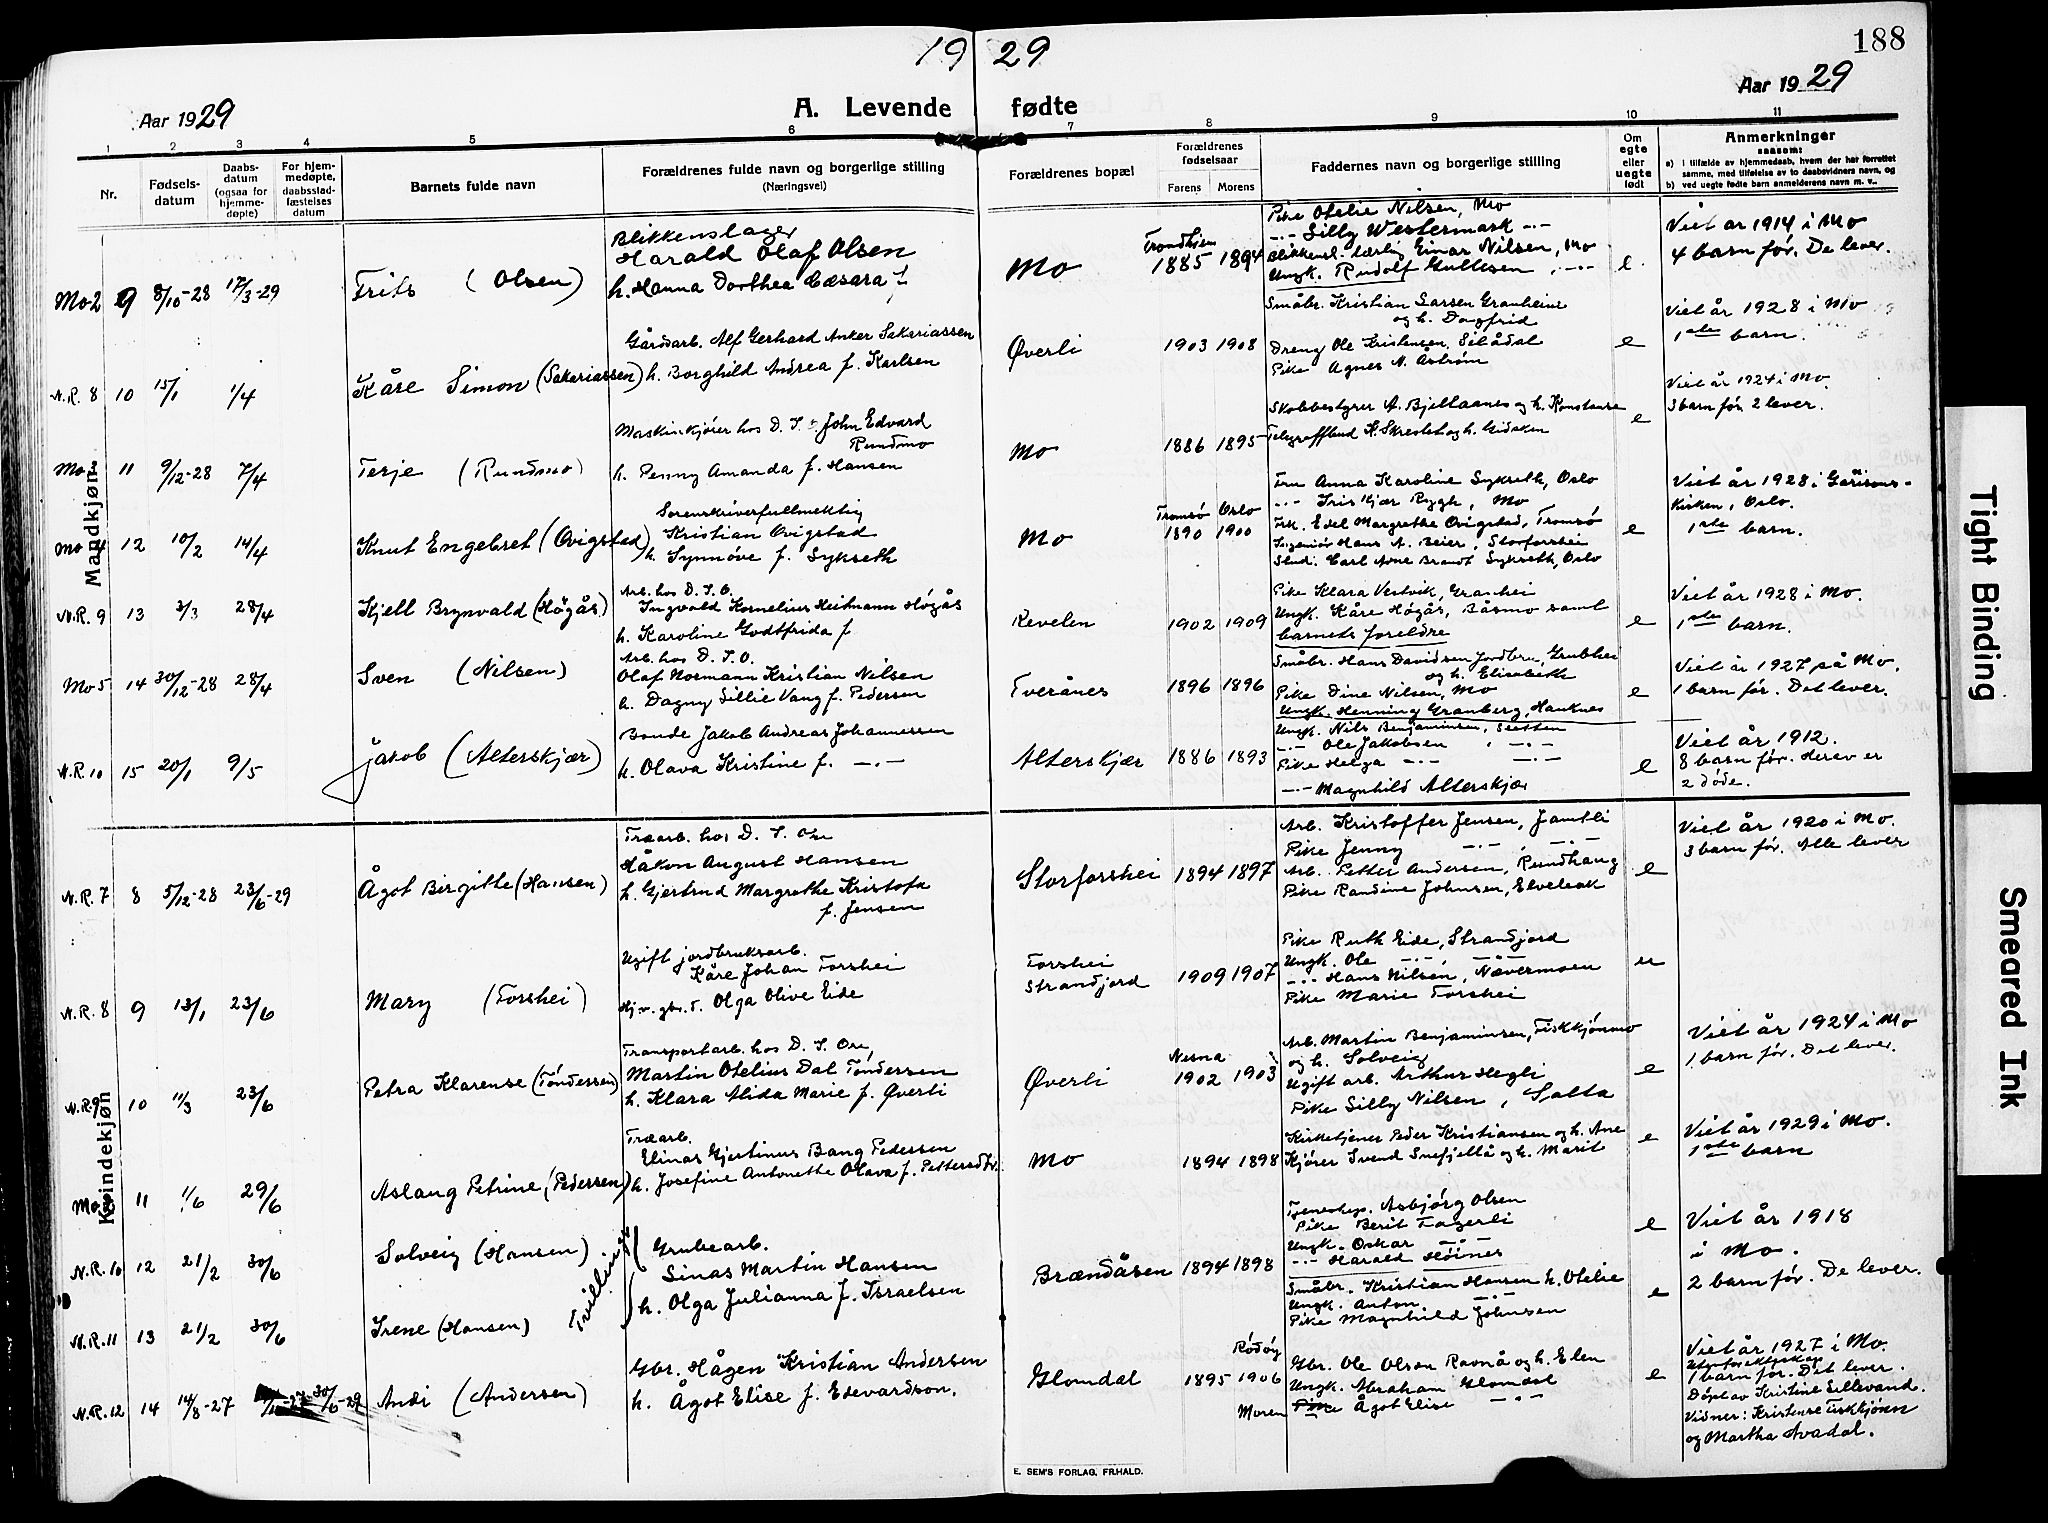 19 29
188
Aar 1929
A. Levende fødte
Aar 1929
1 2 3 4 5 6 7 8 9 10 11
Nr.
Fødsels-
datum
Daabs-
datum
(ogsaa for
hjemme-
døpte)
For hjem-
medøpte,
daabsstad-
fæstelses
datum
Barnets fulde navn
Forældrenes fulde navn og borgerlige stilling
(Næringsvei)
Forældrenes bopæl
Forældrenes
fødselsaar
Farens Morens
Faddernes navn og borgerlig stilling
Om
egte
eller
uegte
født
Anmerkninger
saasom:
a) i tilfælde av hjemmedaab, hvem der har forrettet
samme, med tilføielse av to daabsvidners navn, og
b) ved uegte fødte barn anmelderens navn m. v..
Mandkjøn
Mo 2 9 8/10-28 17/3-29 Frits (Olsen)
Blikkenslager
Harald Olaf Olsen
h. Hanna Dorthea Cæsara f
Mo
Trondhjem
1885 1894
Pike Otelie Nilsen, Mo
-·- Silly Westermark -·-
Blikkensl. lærling Einar Nilsen, Mo
Ungk. Rudolf Gullesen, -·-
e
Viet år 1914 i Mo
4 barn før. De lever.
N.R. 8 10 15/1 1/4 Kåre Simon (Sakariassen)
Gårdarb. Alf Gerhard Anker Sakariassen
h. Borghild Andrea f. Karlsen
Øverli 1903 1908
Småbr. Kristian Larsen Granheim
og h. Dagfrid
Dreng Ole Kristensen,
Pike Agnes N. Åstrøm
e
Viet år 1928 i Mo
1ste barn.
Mo 11 9/12-28 7/4 Terje (Rundmo)
Maskinkjører hos D. I. John Edvard
Rundmo
h. Penny Amanda f. Hansen
Mo 1886 1895
Skobbestyrer A. Bjellaanes og h. Konstanse
e
Viet år 1924 i Mo.
3 barn før. 2 lever.
Mo 4 12 10/2 14/4 Knut Engebret (Qvigstad)
Sorenskriverfullmektig
Kristian Qvigstad
h. Synnøve f. Sykseth
Mo
Tromsø Oslo
1890 1900
Fru Anna Karoline Sykseth, Oslo
-·- Iris Kjær Rygh, Mo
Frk. Edel Margrethe Qvigstad, Tromsø
Ingeniør Hans A. Beier, Storforshei
Stud. Carl Arne Brandt Sykseth, Oslo
e
Viet år 1928 i Garisons-
kirken, Oslo.
1ste barn.
N.R. 9 13 3/3 28/4 Kjell Brynvald (Høgås)
Arb. hos D. I. O.
Ingvald Kornelius Heitmann Høgås
h. Karoline Godtfrida f
Revelen 1902 1909
Pike Klara Vestvik, Granhei
Ungk. Kåre Høgås, Båsmo samt
barnets foreldre
e
Viet år 1928 i Mo.
1ste barn.
Mo 5 14 30/12-28 28/4 Sven (Nilsen)
Arb. hos D. I. O.
Olaf Normann Kristian Nilsen
h. Dagny Sillie Vang f. Pedersen
Tverånes 1896 1896
Småbr. Hans Davidsen Jordbru, Grubhei
og h. Elisabeth
Pike Dine Nilsen, Mo
Ungk. Henning Granberg, Hauknes
e
Viet år 1927 på Mo.
1 barn før. Det lever.
N.R. 10 15 20/1 9/5 Jakob (Alterskjær)
Bonde Jakob Andreas Johannessen
h. Olava Kristine f. -·-
Alterskjær 1886 1893
Ungk. Nils Benjaminsen, Sletten
-·- Ole Jakobsen, -·-
Pike Helga -·- -·-
-·- Magnhild Alterskjær
e
Viet år 1912.
8 barn før. Herav er
2 døde.
Kvindekjøn
N.R. 7 8 5/12-28 23/6-29 Ågot Birgitte (Hansen)
Træarb. hos D. I. Ore
Håkon August Hansen
h. Gjertrud Margrethe Kristofa
f. Jensen
Storforshei 1894 1897
Arb. Kristoffer Jensen, Jamtli
Pike Jenny -·- -·-
Arb. Petter Andersen, Rundhaug
Pike Randine Johnsen, Elveleak
e
Viet år 1920 i Mo.
3 barn før. Alle lever
N.R. 8 9 13/1 23/6 Mary (Forshei)
Ugift jordbruksarb.
Kåre Johan Forshei
Olga Olive Eide
Forshei
Strandjord 1909 1907
Pike Ruth Eide, Strandjord
Ungk. Ole -·- -·-
-·- Hans Nilsen, Nævermoen
Pike Marie Forshei
u
N.R. 9 10 11/3 23/6 Petra Klarense (Tøndersen)
Transportarb. hos D. I. Ore,
Martin Otelius Dal Tøndersen
h. Klara Alida Marie f. Øverli
Øverli
Nesna
1902 1903
Arb. Martin Benjaminsen, Fiskkjønmo
og h. Solveig
Ugift arb. Arthur Hegli
Pike Silly Nilsen, Salta
e
Viet år 1924 i Mo
1 barn før. Det lever.
Mo 11 1/6 29/6 Aslaug Petrine (Pedersen)
Træarb.
Elinas Gjertinus Bang Pedersen
h. Josefine Antonette Olava f.
Mo 1894 1898
Kirketjener Peder Kristiansen og h. Ane
Kjører Svend Snefjellå og h. Marit
e
Viet år 1929 i Mo.
1ste barn
N.R. 10 12 21/2 30/6 Solveig (Hansen)
N.R. 11 13 21/2 30/6 Irene (Hansen)
Tvillinger
Grubearb.
Linas Martin Hansen
h. Olga Julianna f. Israelsen
Brændåsen 1894 1898
Tjeneskap. Asbjørg Olsen
Pike Berit Fagerli
Ungk. Oskar -·-
-·- Harald Høines
e
Småbr. Kristian Hansen h. Otelie
Ungk. Anton -·-
Pike Magnhild Johnsen
e
Viet år 1918
i Mo.
2 barn før. De lever.
N.R. 12 14 14/8-27 30/6-29 Andi (Andersen)
Gbr. Hågen Kristian Andersen
h. Ågot Elise f. Edevardson.
Glomdal
Rødøy
1895 1906
Moren
Gbr. Ole Olsen Ravnå og h. Elen
Ungk. Abraham Glomdal
Pike Ågot Elise -·-
e
Viet år 1927 i Mo.
1 barn før. Det lever.
Døpt av Kristine Lillevand.
Vidner: Kristense Fiskkjønn
og Martha Avadal.
E. SEM'S FORLAG, FR.HALD.
Tight Binding
Smeared Ink